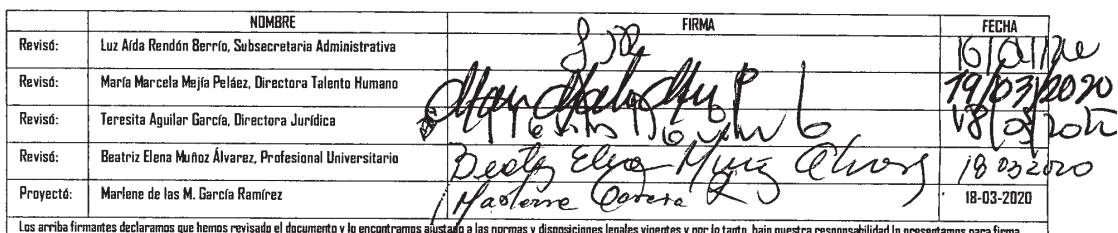 NOMBRE FIRMA FECHA
Revisó: Luz Aída Rendón Berrío, Subsecretaria Administrativa
Revisó: María Marcela Mejía Peláez, Directora Talento Humano 19/03/2020
Revisó: Teresita Aguilar García, Directora Jurídica
Revisó: Beatriz Elena Muñoz Álvarez, Profesional Universitario Beatriz Elena Muñoz Álvarez 18 03 2020
Proyectó: Marlene de las M. García Ramírez Marlene García R 18-03-2020
Los arriba firmantes declaramos que hemos revisado el documento y lo encontramos ajustado a las normas y disposiciones legales vigentes y por lo tanto, bajo nuestra responsabilidad lo presentamos para firma